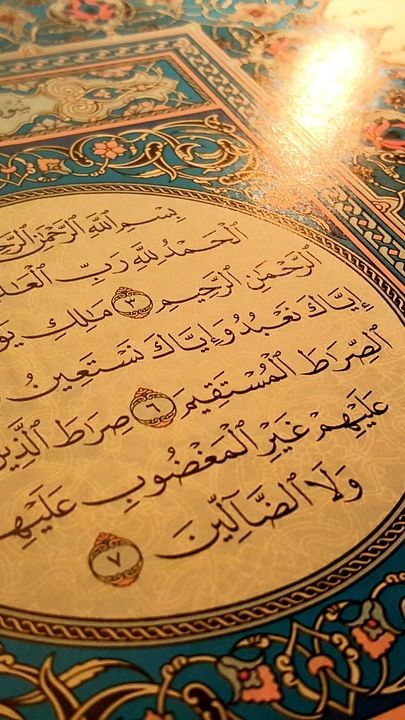 بِسْمِ ٱللَّهِ ٱلرَّحْمَٰنِ
ٱلْحَمْدُ لِلَّهِ رَبِّ
ٱلرَّحْمَٰنِ ٱلرَّحِيمِ ٣ مَالِكِ
إِيَّاكَ نَعْبُدُ وَإِيَّاكَ نَسْتَعِينُ
ٱلصِّرَاطَ ٱلْمُسْتَقِيمَ ٦ صِرَاطَ ٱلَّذِينَ
عَلَيْهِمْ غَيْرِ ٱلْمَغْضُوبِ عَلَيْهِمْ
وَلَا ٱلضَّآلِّينَ ٧